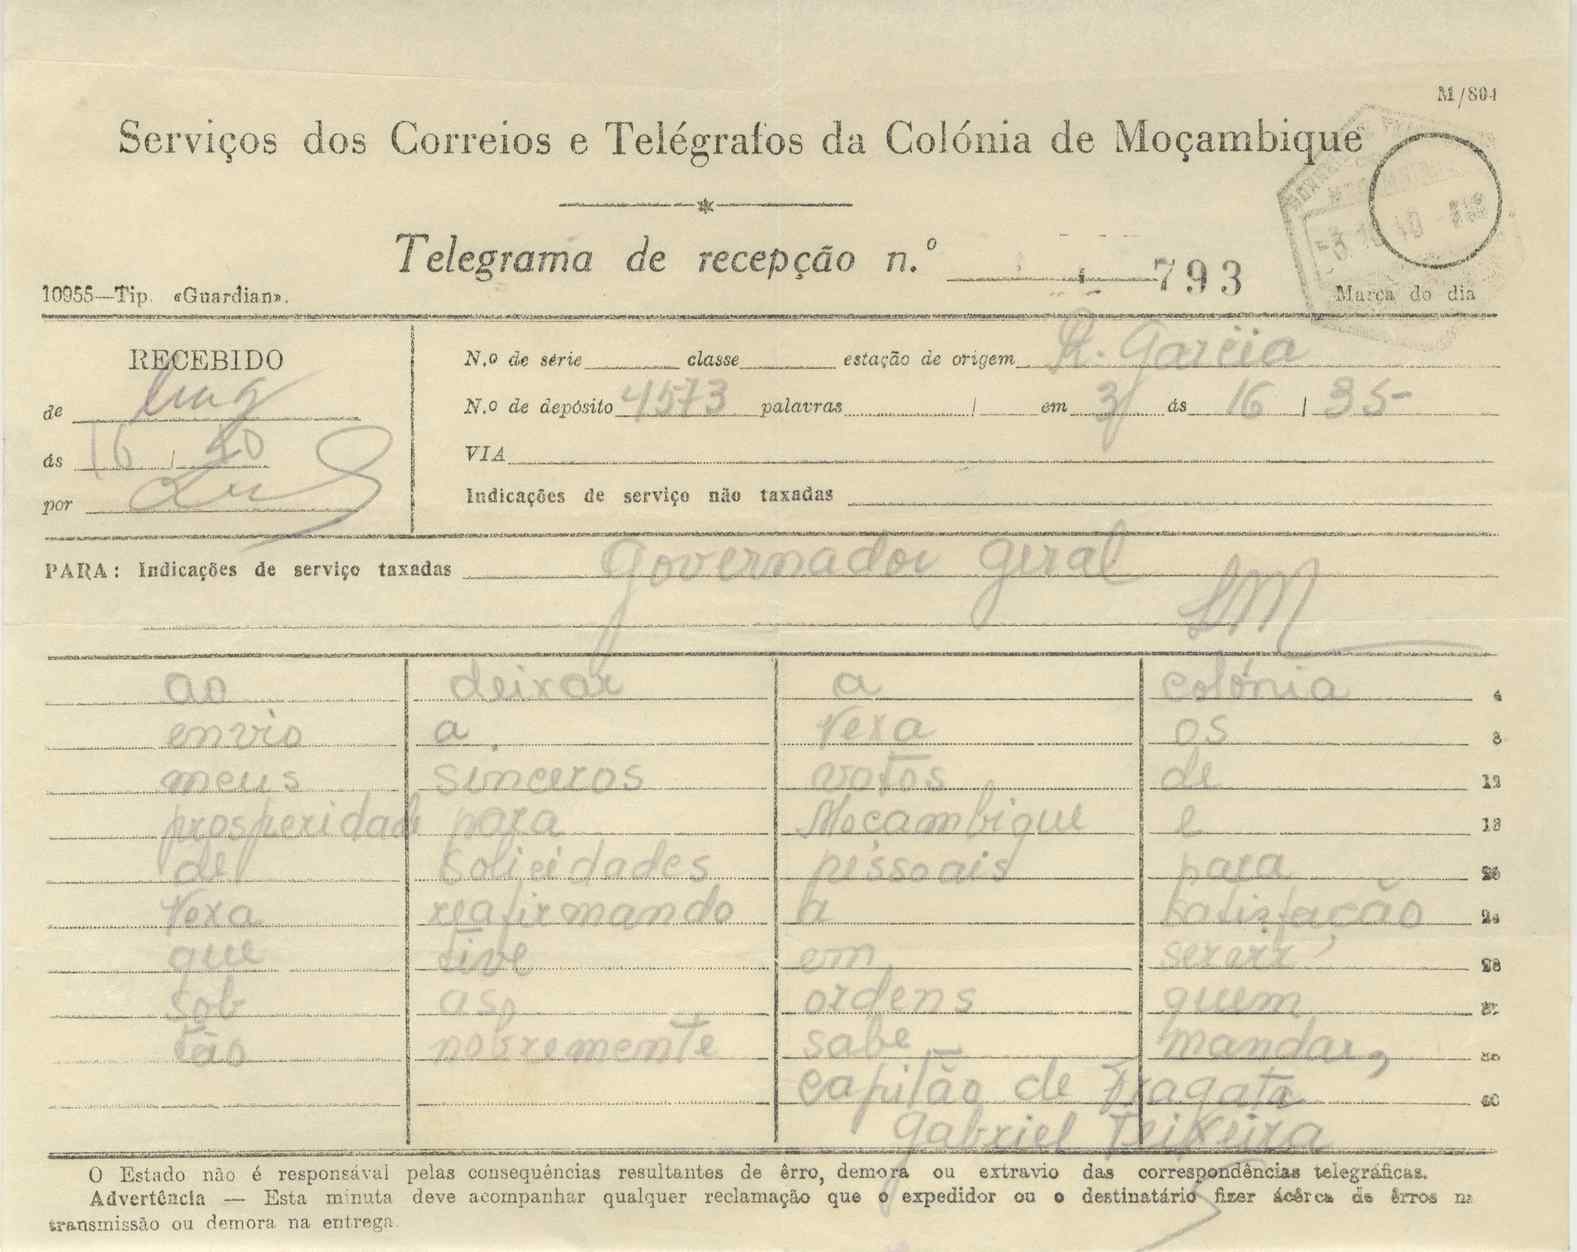 M/804
Serviços dos Correios e Telégrafos da Colónia de Moçambique
Telegrama de recepção n.º 793
10955—Tip. «Guardian».
Marca do dia
RECEBIDO
de
ás 16 / 40
por
N.º de série classe estação de origem R. Garcia
N.º de depósito 4573 palavras / em 3/ ás 16 / 35
VIA
Indicações de serviço não taxadas
PARA: Indicações de serviço taxadas Governador Geral
LM
ao deixar a colónia 4
envio a Vexa os 8
meus sinceros votos de 12
prosperidade para Moçambique e
de pessoais para
Vexa reafirmando a satisfação 24
que tive em servir 28
sob as ordens quem
tão nobremente sabe mandar,
capitão de Fragata 40
Gabriel Teixeira
O Estado não é responsável pelas consequências resultantes de êrro, demora ou extravio das correspondências telegráficas.
Advertência — Esta minuta deve acompanhar qualquer reclamação que o expedidor ou o destinatário fizer ácêrca de êrros na
transmissão ou demora na entrega.